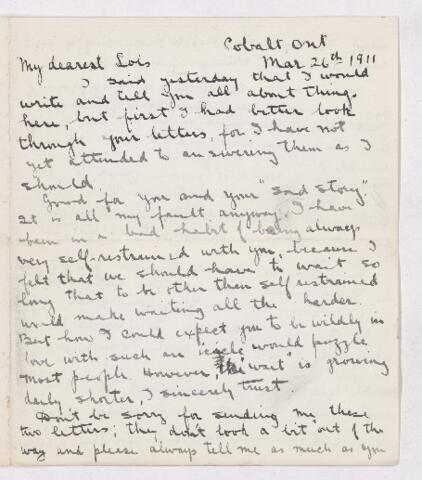 Cobalt, Ont
Mar 26th 1911
My dearest Lois
I said yesterday that I would
write and tell you all about things
here, but first I had better look
through your letters, for I have not
yet attended to answering them as I
should.
Good for you and your "sad story".
It is all my fault, anyway. I have
been in a bad habit of being always
very self-restrained with you, because I
felt that we should have to wait so
long that to be other then self restrained
would make waiting all the harder.
But how I could expect you to be wildly in
love with such an icicle would puzzle
most people. However, "wait" is growing
daily shorter, I sincerely trust.
Don't be sorry for sending me these
two letters; they don't look a bit out of the
way and please always tell me as much as you